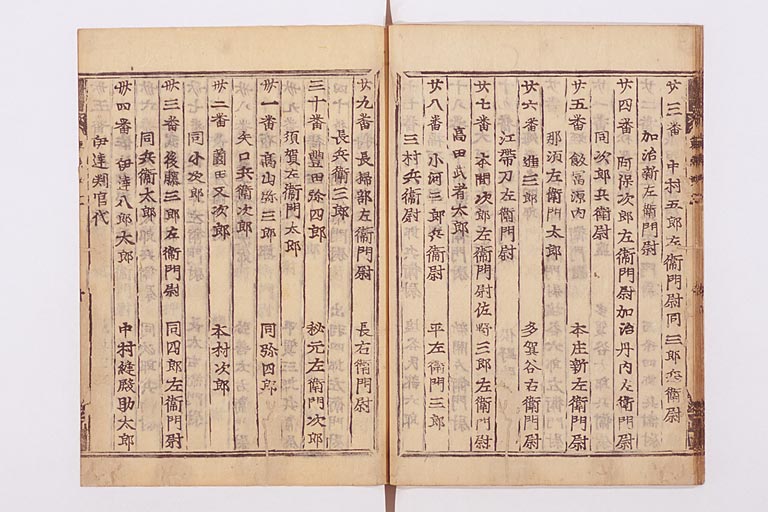 廿三番 中村五郎左衛門尉同三郎兵衛尉
加治新左衛門尉
廿四番 阿保次郎左衛門尉加治丹内左衛門尉
同次郎兵衛尉
廿五番 飯冨源内 本庄新左衛門尉
那須左衛門太郎
廿六番 進三郎 多賀谷右衛門尉
江帯刀左衛門尉
廿七番 本間次郎左衛門尉佐野三郎左衛門尉
高田武者太郎
廿八番 小河三郎兵衛尉 平左衛門三郎
三村兵衛尉
廿九番 長掃部左衛門尉 長右衛門尉
長兵衛三郎
三十番 豊田弥四郎 秋元左衛門次郎
須賀左衛門太郎
卅一番 高山弥三郎 同弥四郎
矢口兵衛次郎
卅二番 薗田又次郎 木村次郎
同小次郎
卅三番 後藤三郎左衛門尉 同四郎左衛門尉
同兵衛太郎
卅四番 伊達八郎太郎 中村縫殿助太郎
伊達判官代